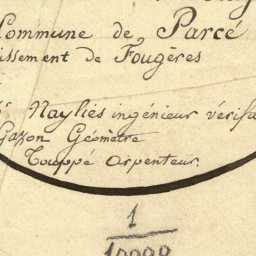 Commune de Parcé
issement de Fougères
Naylies ingénieur vérifi
Gazon Géomètre
Touppé arpenteur.
1
10000